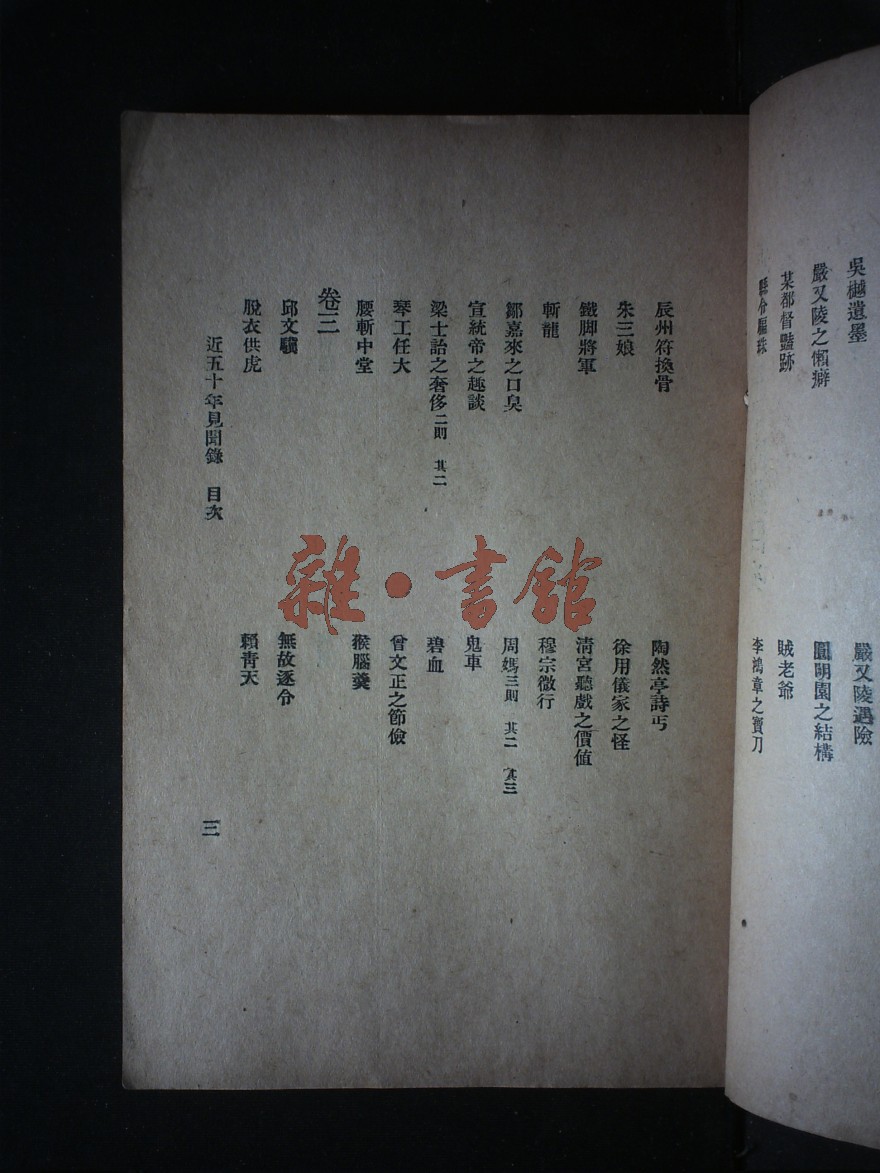 吳樾遺墨
嚴又陵遇險
嚴又陵之懶癖
圓明園之結構
某都督豔跡
賊老爺
縣令騙珠
李鴻章之寶刀
辰州符換骨
陶然亭詩丐
朱三娘
徐用儀家之怪
鐵脚將軍
清宮聽戲之價値
斬龍
穆宗微行
鄒嘉來之口臭
周媽三則 其二 其三
宣統帝之趣談
鬼車
梁士詒之奢侈二則 其二
碧血
琴工任大
曾文正之節儉
腰斬中堂
猴腦羹
卷三
邱文驥
無故逐令
脫衣供虎
賴靑天
近五十年見聞錄 目次
三
雜·書館